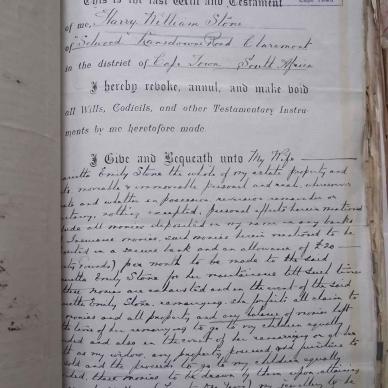 This is the last Will and Testament
Cape Town
of me, Harry William Stone
of "Selwood" Lansdowne Road Claremont
in the district of Cape Town South Africa
I hereby revoke, annul, and make void
all Wills, Codicils, and other Testamentary Instru-
ments by me heretofore made.
I Give and Bequeath unto My Wife
Emily Stone the whole of my estate property and
movable & immovable personal and real, wheresoever
and whether in possession reversion remainder or
nothing excepted, personal effects herein mentioned
all monies deposited in my name in any banks
Insurance monies, said monies herein mentioned to be
in a secure bank and an allowance of £20
per month to be made to the said
Emily Stone for her maintainance till such time
these monies are exhausted and in the event of the said
Emily Stone, remarrying, she forfeits all claim to
monies and all property and any balance of monies left
the time of her remarrying to go to my children equally
and also in the event of her remarrying or of her
as my widow, any property, household furniture to
sold and the proceeds to go to my children equally
these monies to be drawn by them upon attaining
my jewellery to be